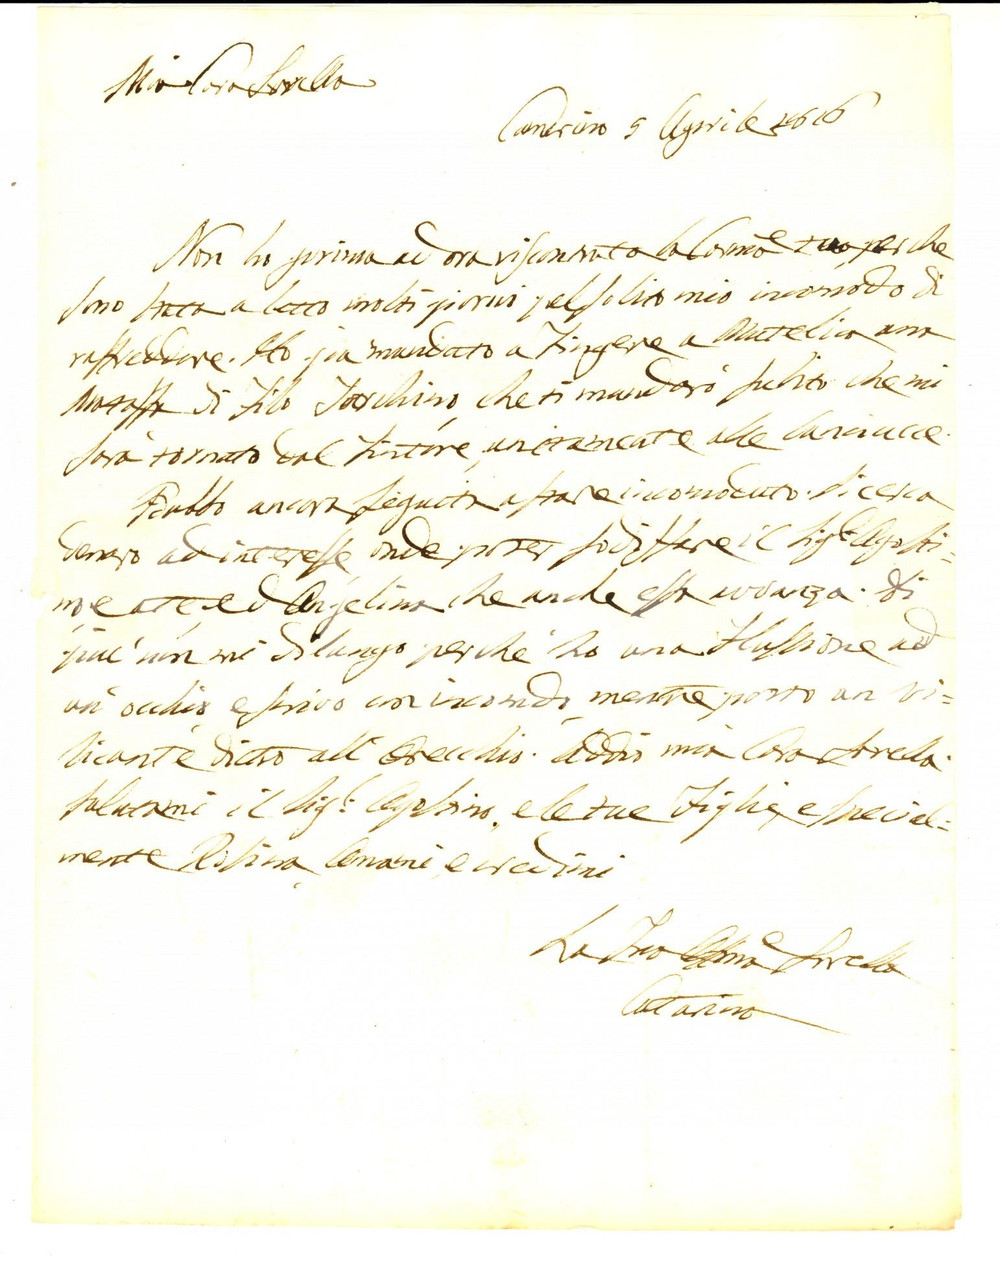 Mia Cara Sorella
Camerino 5 Aprile
Non ho prima ad ora riscontrato la tua perche
sono stata a letto molti giorni pel solito mio incomodo di
raffreddore. Ho già mandato a tingere a Matelica una
Matassa di filo Torchino, che ti manderò subito che mi
sarà tornato dal Tintore, unitamente alle
Babbo ancora seguita a stare incomodato. Si cerca
denaro ad interesse onde poter sodisfare il Sigr. Agosti=
no e a te, ed Angelina che anche essa avvanza. Di
più non mi dilungo perchè ho una Flussione ad
un' occhio e scrivo con incomodo, mentre porto un Vi=
sicante dietro all' Orecchio. Addio mia Cara Sorella.
salutami il Sigr. Agostino, e le tue Figlie, e special=
mente Rosina, Amami, e credimi
La Tua Affma Sorella
Catarina